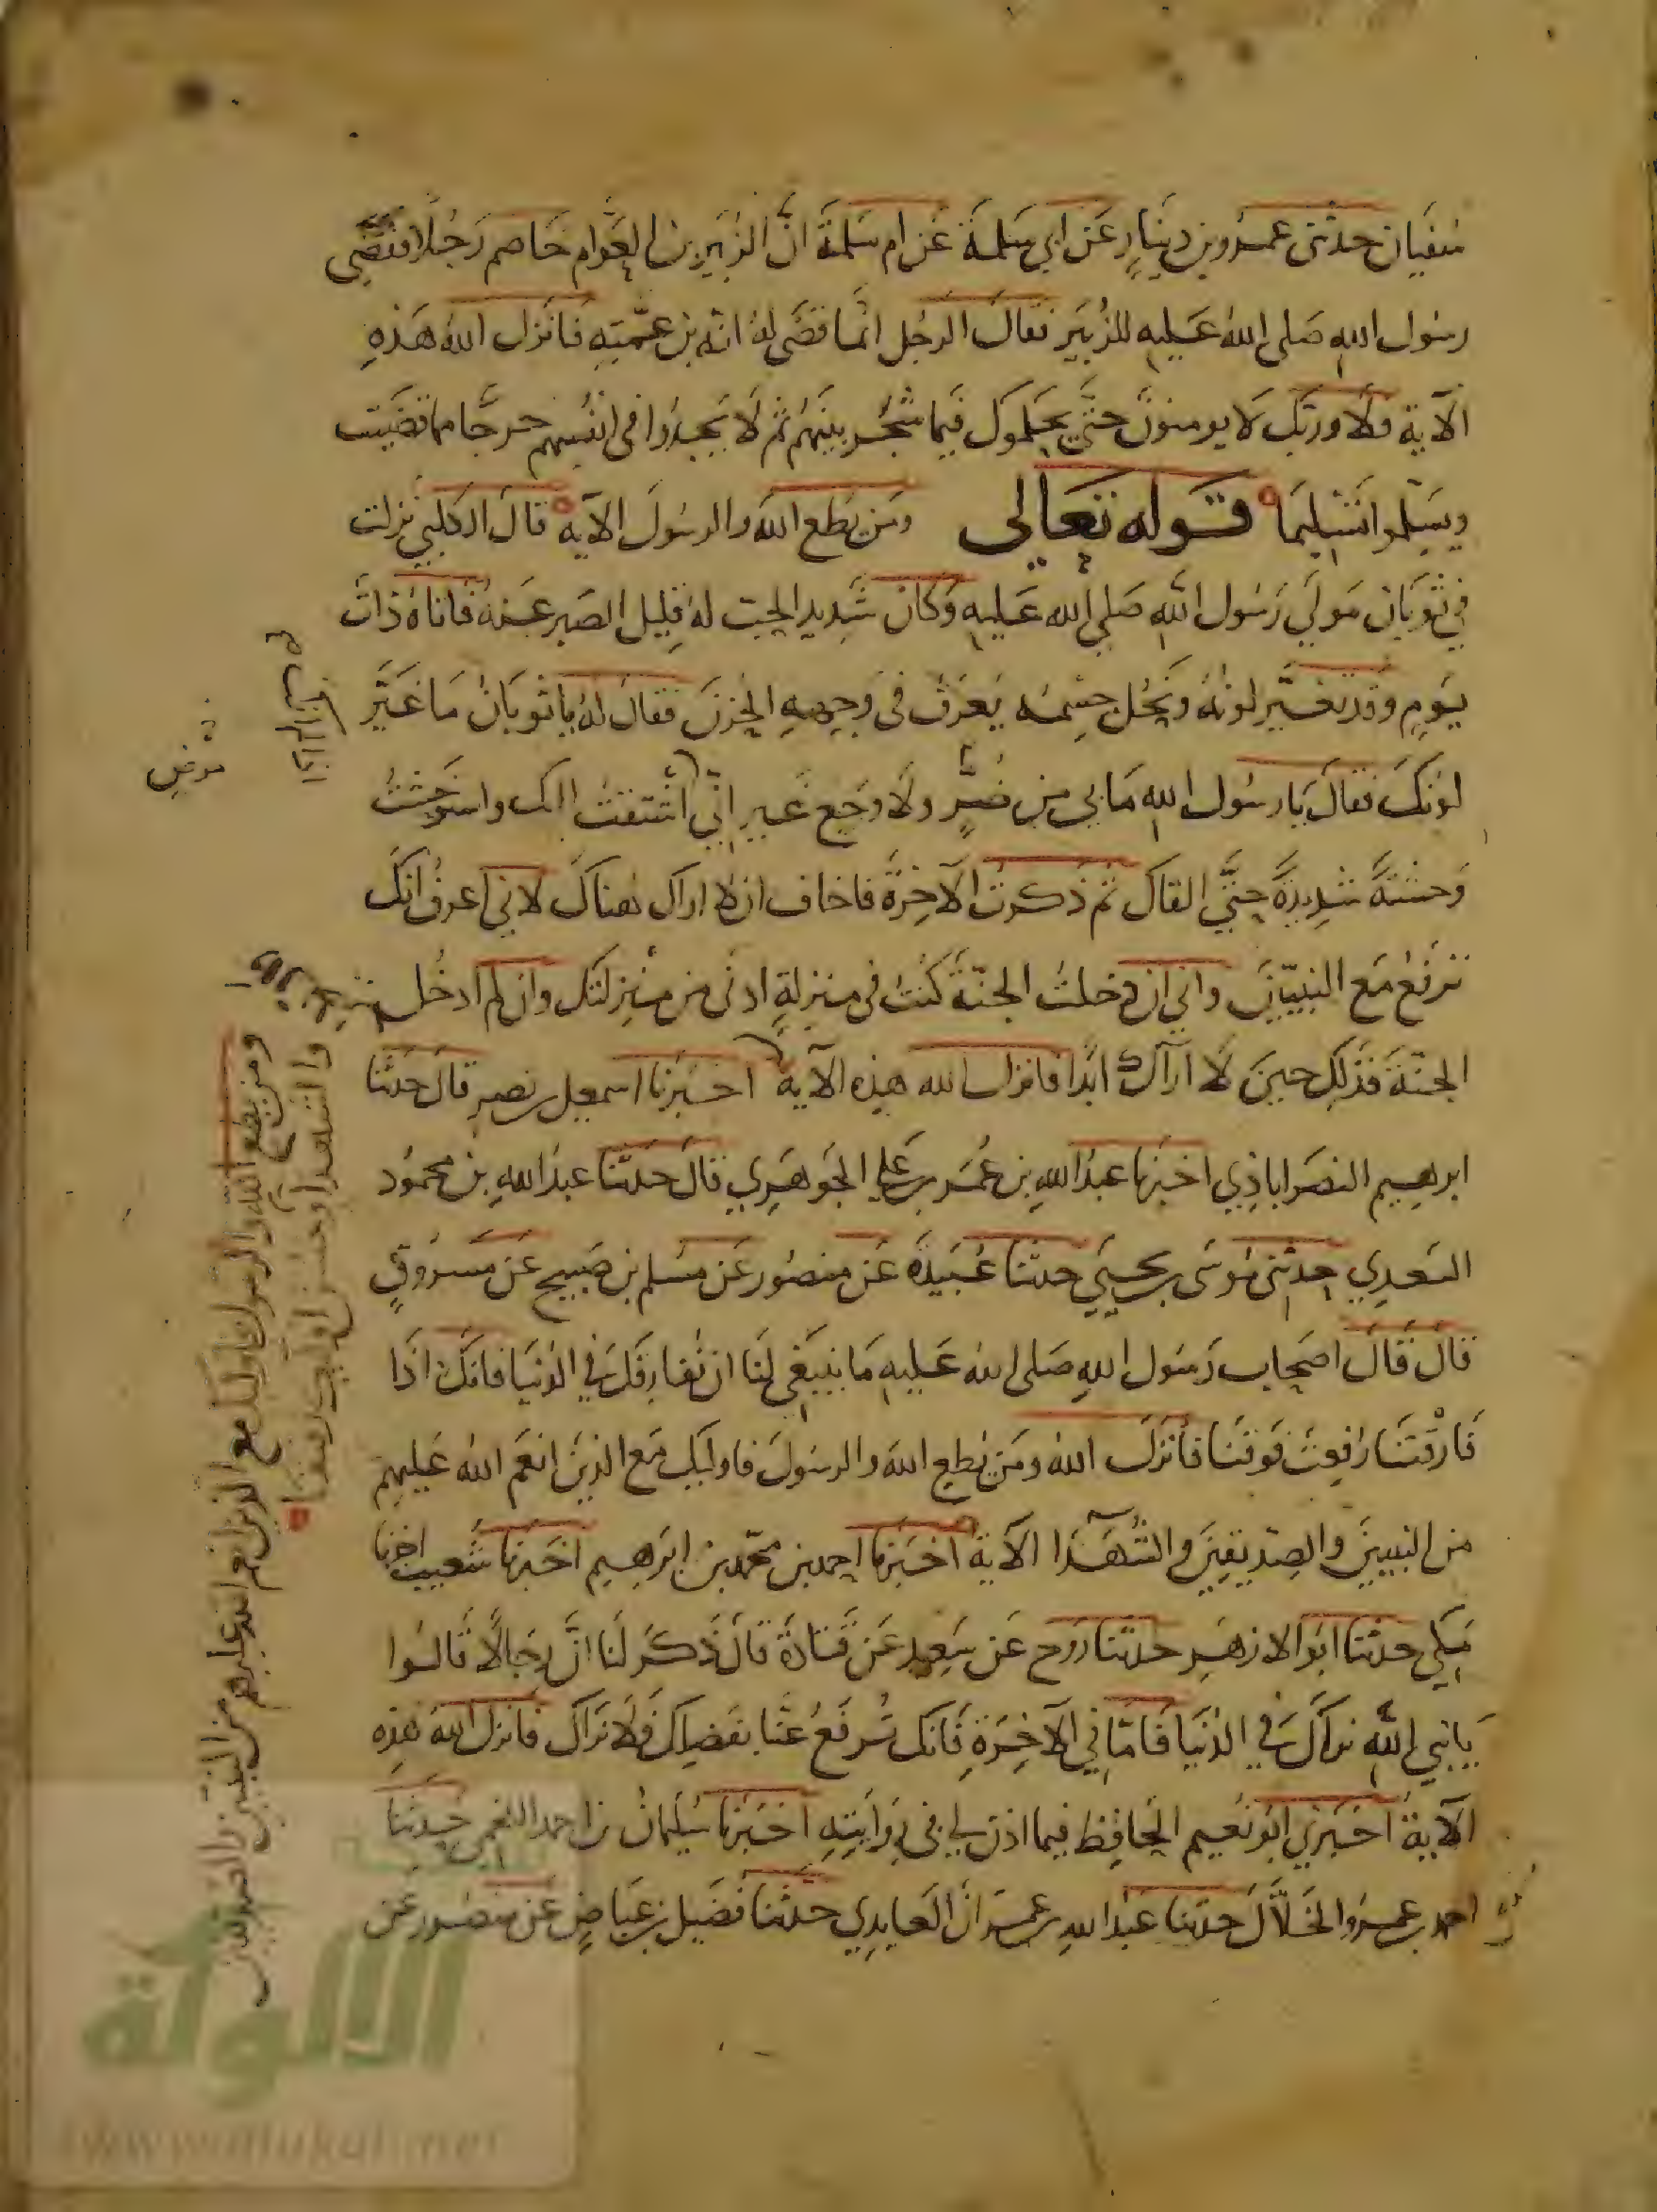 سفيان حدثنى عمرو بن دينار عن ابي سلمة عن ام سلمة ان الزبير بن العوام خاصم رجلا فقضى
رسول الله صلى الله عليه للزبير فقال الرجل انما قضى له انه بن عمته فانزل الله هذه
الآية فلا وربك لا يومنون حتى يحكموك فيما شجر بينهم ثم لا يجدوا فى انفسهم حرجا مما قضيت
ويسلموا تسليما قوله تعالى ومن يطع الله والرسول الآية قال الكلبي نزلت
في ثوبان مولى رسول الله صلى الله عليه وكان شديد الحب له قليل الصبر عنه فاتاه ذات
يوم وقد تغير لونه ونحل جسمه يعرف فى وجهه الحزن فقال له يا ثوبان ما غير
لونك فقال يا رسول الله ما بي من ضر ولا وجع غير اني اشتقت اليك واستوحشت
وحشة شديدة حتى القاك ثم ذكرت الآخرة فاخاف ان لا اراك هناك لاني اعرف انك
ترفع مع النبيين واني ان دخلت الجنة كنت فى منزلة ادنى من منزلتك وان لم ادخل
الجنة فذلك حين لا اراك ابدا فانزل الله هذه الآية اخبرنا اسمعيل بن نصير قال حدثنا
ابرهيم النصراباذي اخبرنا عبد الله بن عمر بن علي الجوهري قال حدثنا عبد الله بن محمود
السعدي حدثنى موسى بن يحيى حدثنا عبيدة عن منصور عن مسلم بن صبيح عن مسروق
قال قال اصحاب رسول الله صلى الله عليه ما ينبغي لنا ان نفارقك في الدنيا فانك اذا
فارقتنا رفعت فوقنا فأنزل الله ومن يطع الله والرسول فاوليك مع الذين انعم الله عليهم
من النبيين والصديقين والشهدا الآية اخبرنا احمد بن محمد بن ابرهيم اخبرنا شعيب اخبرنا
مكي حدثنا ابو الازهر حدثنا روح عن سعيد عن قتادة قال ذكر لنا ان رجالا قالوا
يا نبي الله نراك في الدنيا فاما في الآخرة فانك ترفع عنا بفضلك فلا نراك فانزل الله هذه
الآية اخبرني ابو نعيم الحافظ فيما اذن لي فى روايته اخبرنا سليمان بن احمد اللخمي حدثنا
احمد بن عمرو الخلال حدثنا عبد الله بن عمران العابدي حدثنا فضيل بن عياض عن منصور عن
ومن يطع الله والرسول فاوليك مع الذين انعم الله عليهم من النبيين والصديقين
والشهدا وحسن اوليك رفيقا
الألوكة
www.alukah.net